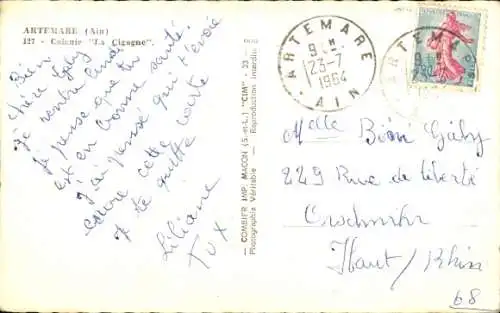 ARTEMARE (Ain)
127 - Colonie "La Cigogne".
Bien
chère Gaby
je rentre lundi
Je pense que tu
est en bonne santé.
J'ai pensé qui t'envoie
encore cette carte
Je te quitte
Liliane
Tux
COMBIER IMP. MACON (S.-et-L.) "CIM"
Photographie Véritable - Reproduction Interdite
ARTEMARE
9 H
23-7
1964
AIN
ARTEMA
9 H
Melle Bién Gaby
229 Rue de liberté
Haut/Rhin
68